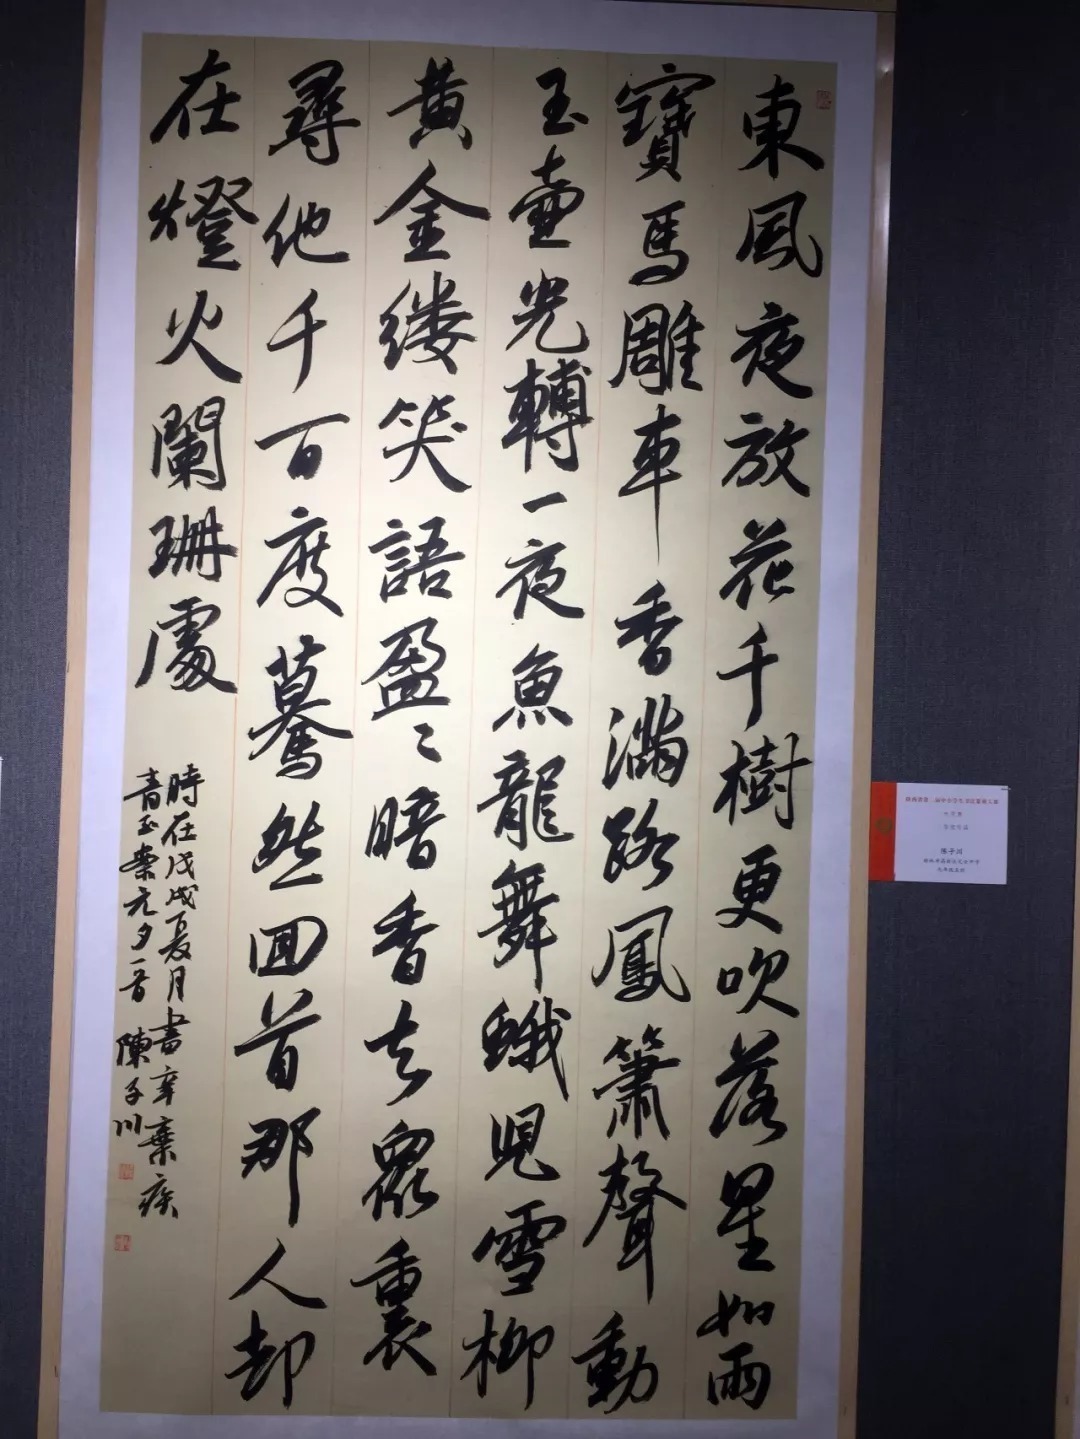 東風夜放花千樹更吹落星如雨
寶馬雕車香滿路鳳簫聲動
玉壺光轉一夜魚龍舞蛾兒雪柳
黄金缕笑語盈〻暗香去眾裏
尋他千百度驀然回首那人却
在燈火闌珊處
時在戊戌夏月書辛棄疾
青玉案元夕一首 陳子川
陈子川